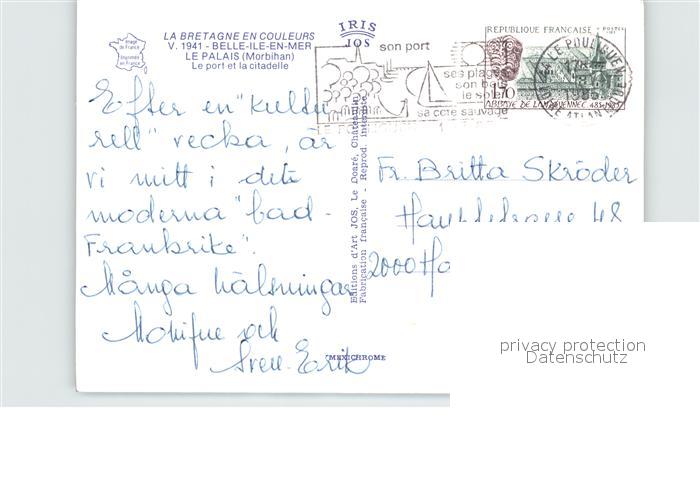 LA BRETAGNE EN COULEURS
V. 1941 - BELLE-ILE-EN-MER
LE PALAIS (Morbihan)
Le port et la citadelle
Image de France
Imprimée en France
IRIS
JOS
son port
ses plages
son
le soleil
sa côte sauvage
REPUBLIQUE FRANÇAISE
POSTES
1,70
ABBAYE DE LANDEVENNEC 485-1985
LE POULIGUEN
Efter en "kultu
rell" vecka, är
vi mitt i det
moderna "bad-
Frankrike".
Många hälsningar
Monique och
Sven-Erik
Editions d'Art JOS, Le Doaré, Châteaulin
Fabrication française - Reprod. interdite
MEXICHROME
Fr. Britta Skröder
48
2000
privacy protection
Datenschutz